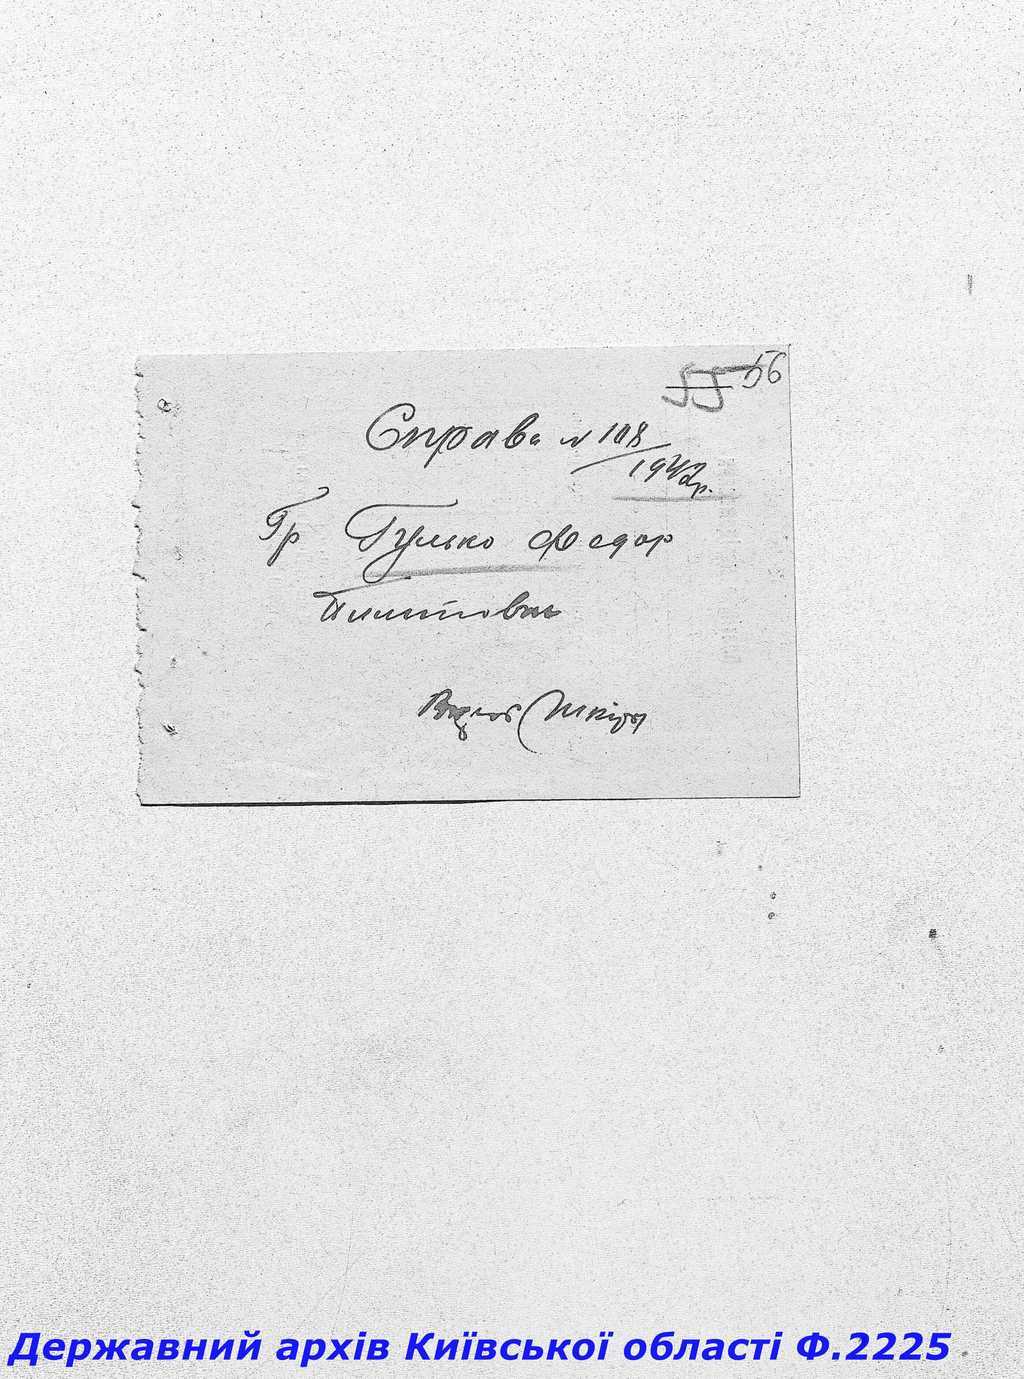 55 56
Справа № 108
1942р.
Гр Гулько Федор
Державний архів Київської області Ф.2225